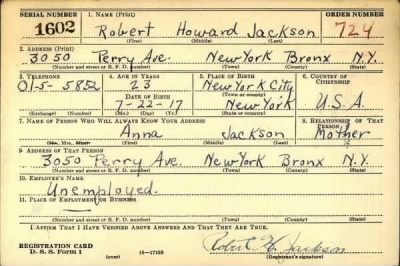 SERIAL NUMBER 1. NAME (Print) ORDER NUMBER
1602 Robert Howard Jackson 724
(First) (Middle) (Last)
2. ADDRESS (Print)
3050 Perry Ave. New York Bronx N.Y.
(Number and street or R. F. D. number) (Town) (County) (State)
3. TELEPHONE 4. AGE IN YEARS 5. PLACE OF BIRTH 6. COUNTRY OF CITIZENSHIP
Ol-5-5852 23 New York City
DATE OF BIRTH (Town or county)
7-22-17 New York U.S.A.
(Exchange) (Number) (Mo.) (Day) (Yr.) (State or country)
7. NAME OF PERSON WHO WILL ALWAYS KNOW YOUR ADDRESS 8. RELATIONSHIP OF THAT PERSON
Anna Jackson Mother
(Mr., Mrs., Miss) (First) (Middle) (Last)
9. ADDRESS OF THAT PERSON
3050 Perry Ave. New York Bronx N.Y.
(Number and street or R. F. D. number) (Town) (County) (State)
10. EMPLOYER'S NAME
Unemployed.
11. PLACE OF EMPLOYMENT OR BUSINESS
(Number and street or R. F. D. number) (Town) (County) (State)
I AFFIRM THAT I HAVE VERIFIED ABOVE ANSWERS AND THAT THEY ARE TRUE.
REGISTRATION CARD
D. S. S. Form 1 (over) 16—17105 Robert H. Jackson
(Registrant's signature)